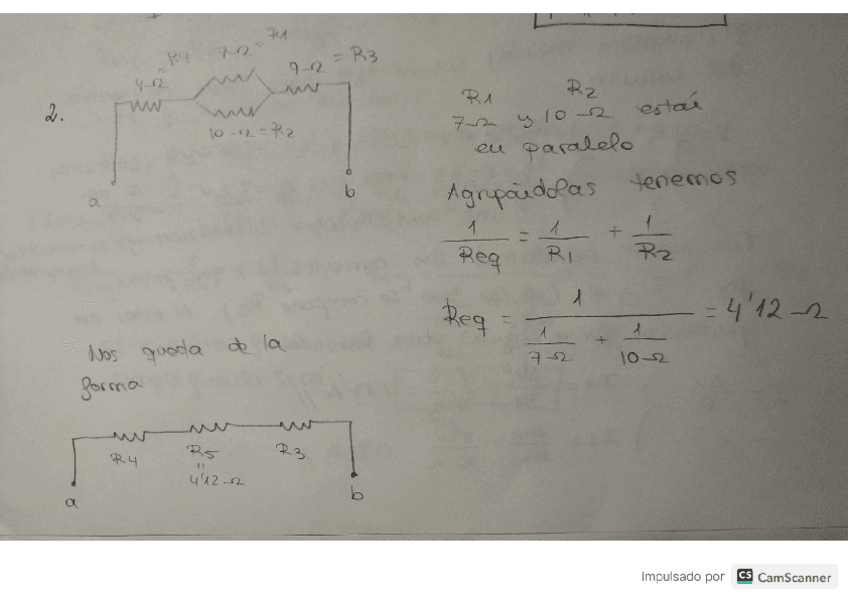 2.
4Ω = R4
7Ω = R1
9Ω = R3
10Ω = R2
a
b
R1 R2
7Ω y 10Ω están
en paralelo
Agrupándolas tenemos
1/Req = 1/R1 + 1/R2
Req = 1/(1/7Ω + 1/10Ω) = 4'12Ω
Nos queda de la
forma
R4 R5 R3
"
4'12Ω
a
b
Impulsado por CS CamScanner